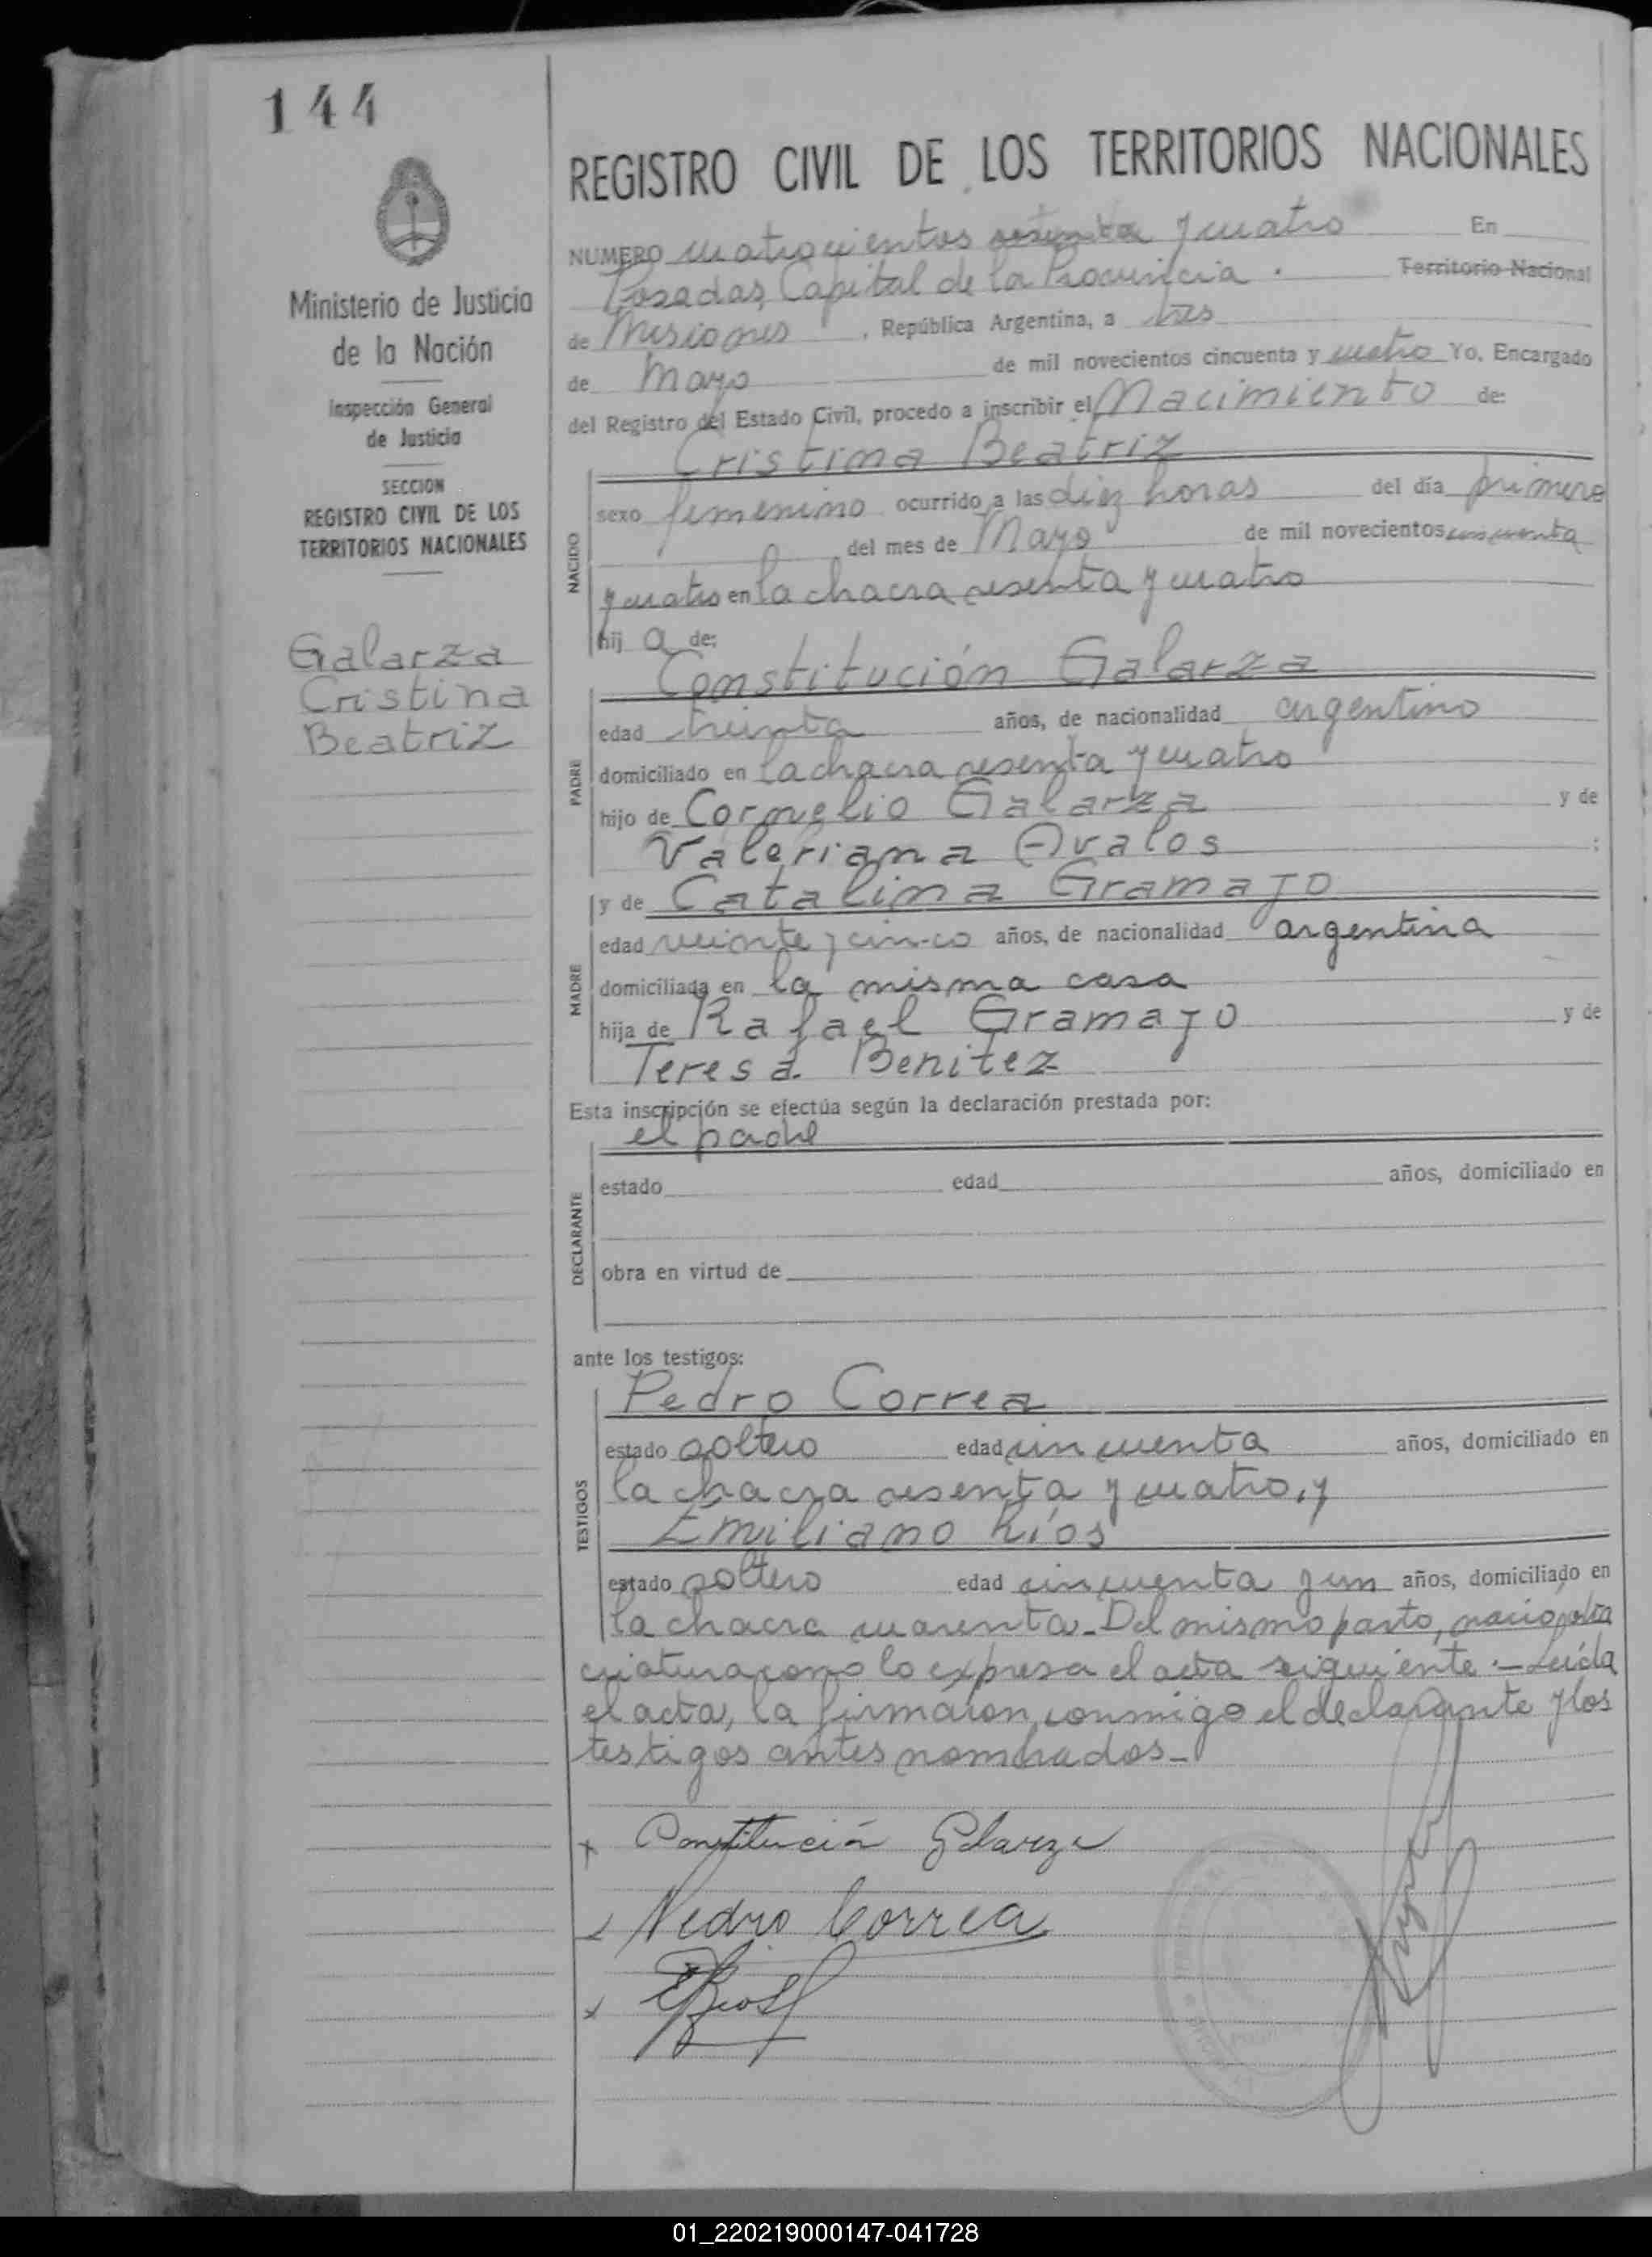 144
REGISTRO CIVIL DE LOS TERRITORIOS NACIONALES
Ministerio de Justicia
de la Nación
Inspección General
de Justicia
SECCION
REGISTRO CIVIL DE LOS
TERRITORIOS NACIONALES
Galarza
Cristina
Beatriz
NUMERO cuatrocientos setenta y cuatro En
Posadas, Capital de la Provincia. Territorio Nacional
de Misiones, República Argentina, a tres
de Mayo de mil novecientos cincuenta y cuatro Yo, Encargado
del Registro del Estado Civil, procedo a inscribir el Nacimiento de:
Cristina Beatriz
NACIDO
sexo femenino ocurrido a las diez horas del día primero
del mes de Mayo de mil novecientos cincuenta
y cuatro en la chacra sesenta y cuatro
hij a de:
Constitución Galarza
PADRE
edad treinta años, de nacionalidad argentino
domiciliado en la chacra sesenta y cuatro
hijo de Cornelio Galarza y de
Valeriana Avalos ;
y de Catalina Gramajo
MADRE
edad veinte y cinco años, de nacionalidad argentina
domiciliada en la misma casa
hija de Rafael Gramajo y de
Teresa Benitez
Esta inscripción se efectúa según la declaración prestada por:
el padre
DECLARANTE
estado edad años, domiciliado en
obra en virtud de
ante los testigos:
Pedro Correa
TESTIGOS
estado soltero edad cincuenta años, domiciliado en
la chacra sesenta y cuatro, y
Emiliano Ríos
estado soltero edad cincuenta y un años, domiciliado en
la chacra cuarenta. Del mismo parto, nació otra
criatura como lo expresa el acta siguiente.- Leída
el acta, la firmaron conmigo el declarante y los
testigos antes nombrados.-
Constitución Galarza
Pedro Correa
ERios
01_220219000147-041728